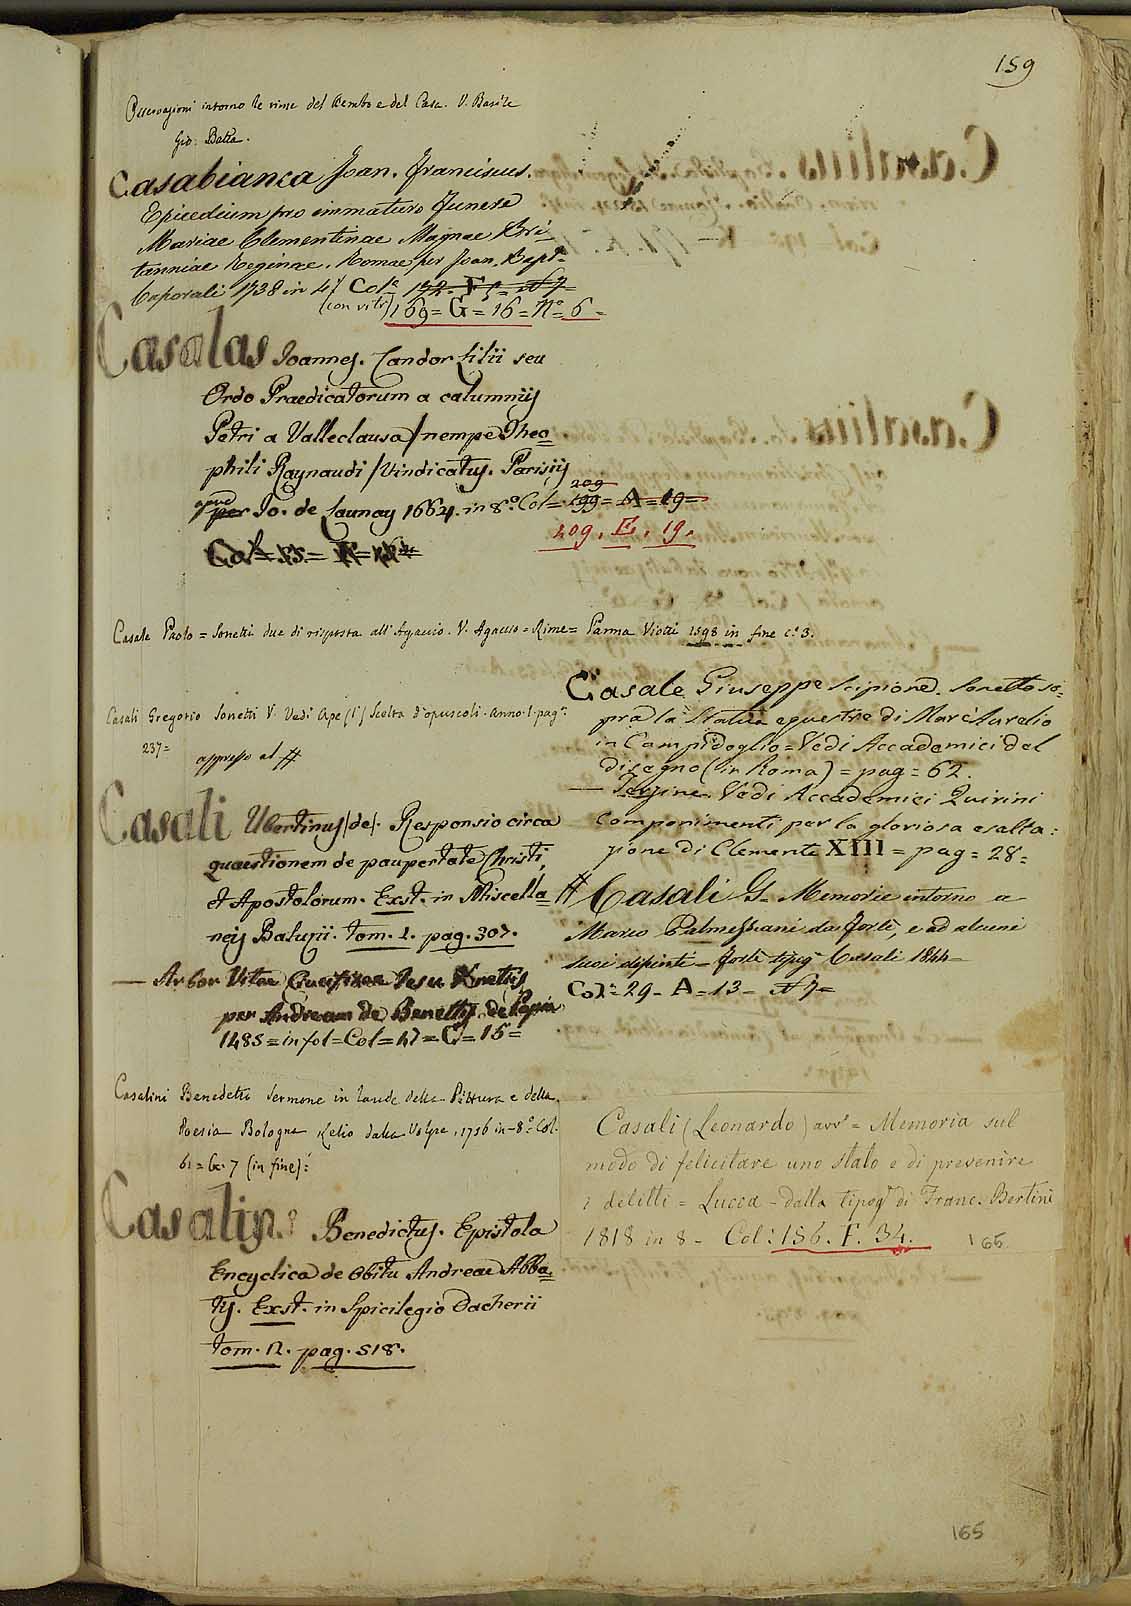 159
Osservazioni intorno le rime del Bembo e del Casa. V. Basile
Gio: Batta.
Casabianca Joan. Franciscus.
Epicedium pro immaturo Funere
Mariae Clementinae Magnae Bri-
tanniae Reginae. Romae per Joan. Bapt.
Caporali 1738 in 4.
(con vite) 169 = G = 16 = N.º 6 =
Casalas Joannes. Candor Lilii seu
Ordo Praedicatorum a calumniis
Petri a Valleclausa / nempe Theo=
phili Raynaudi / Vindicatus. Parisiis
apud Jo. de Launay 1664. in 8.º Col= 199 = A = 19 =
209
209. E. 19.
Casale Paolo = Sonetti due di risposta all'Agaccio. V. Agaccio = Rime = Parma Viotti 1598 in fine c.º 3.
Casali Gregorio Sonetti V. Vedi Ape (l') Scelta d'opuscoli. Anno. I. pag.
237 =
appresso al #
Casali Ubertinus (de). Responsio circa
quaestionem de paupertate Christi,
et Apostolorum. Exst. in Miscella=
neis Baluzii. tom. 1. pag. 307.
— Arbor Vitae Crucifixae Jesu
per Andream de Benettis de Papia
1485 = in fol = Col = 47 = C = 15 =
Casalini Benedetto Sermone in laude della Pittura e della
Poesia Bologna Lelio dalla Volpe. 1756 in-8.º Col.
61 = G. 7 (in fine):
Casalin.s Benedictus. Epistola
Encyclica de Obitu Andreae Abba=
tis. Exst. in Spicilegio Dacherii
tom. 2. pag. 518.
Casale Giuseppe Scipione. Sonetto so=
pra la Statua equestre di Marc'Aurelio
in Campidoglio = Vedi Accademici del
disegno (in Roma) = pag = 62.
— Terzine. Vedi Accademici Quirini
Componimenti per la gloriosa esalta:
zione di Clemente XIII = pag = 28 =
# Casali G. Memorie intorno a
Marco Palmeggiani da Forlì, e ad alcuni
suoi dipinti = Forlì tipog. Casali 1844 =
Col: 29 - A = 13 - N 7 =
Casali (Leonardo) avv.º = Memoria sul
modo di felicitare uno stato e di prevenire
i delitti = Lucca - dalla tipog.ª di Franc. Bertini
1818 in 8 - Col: 156. F. 34.
165
165